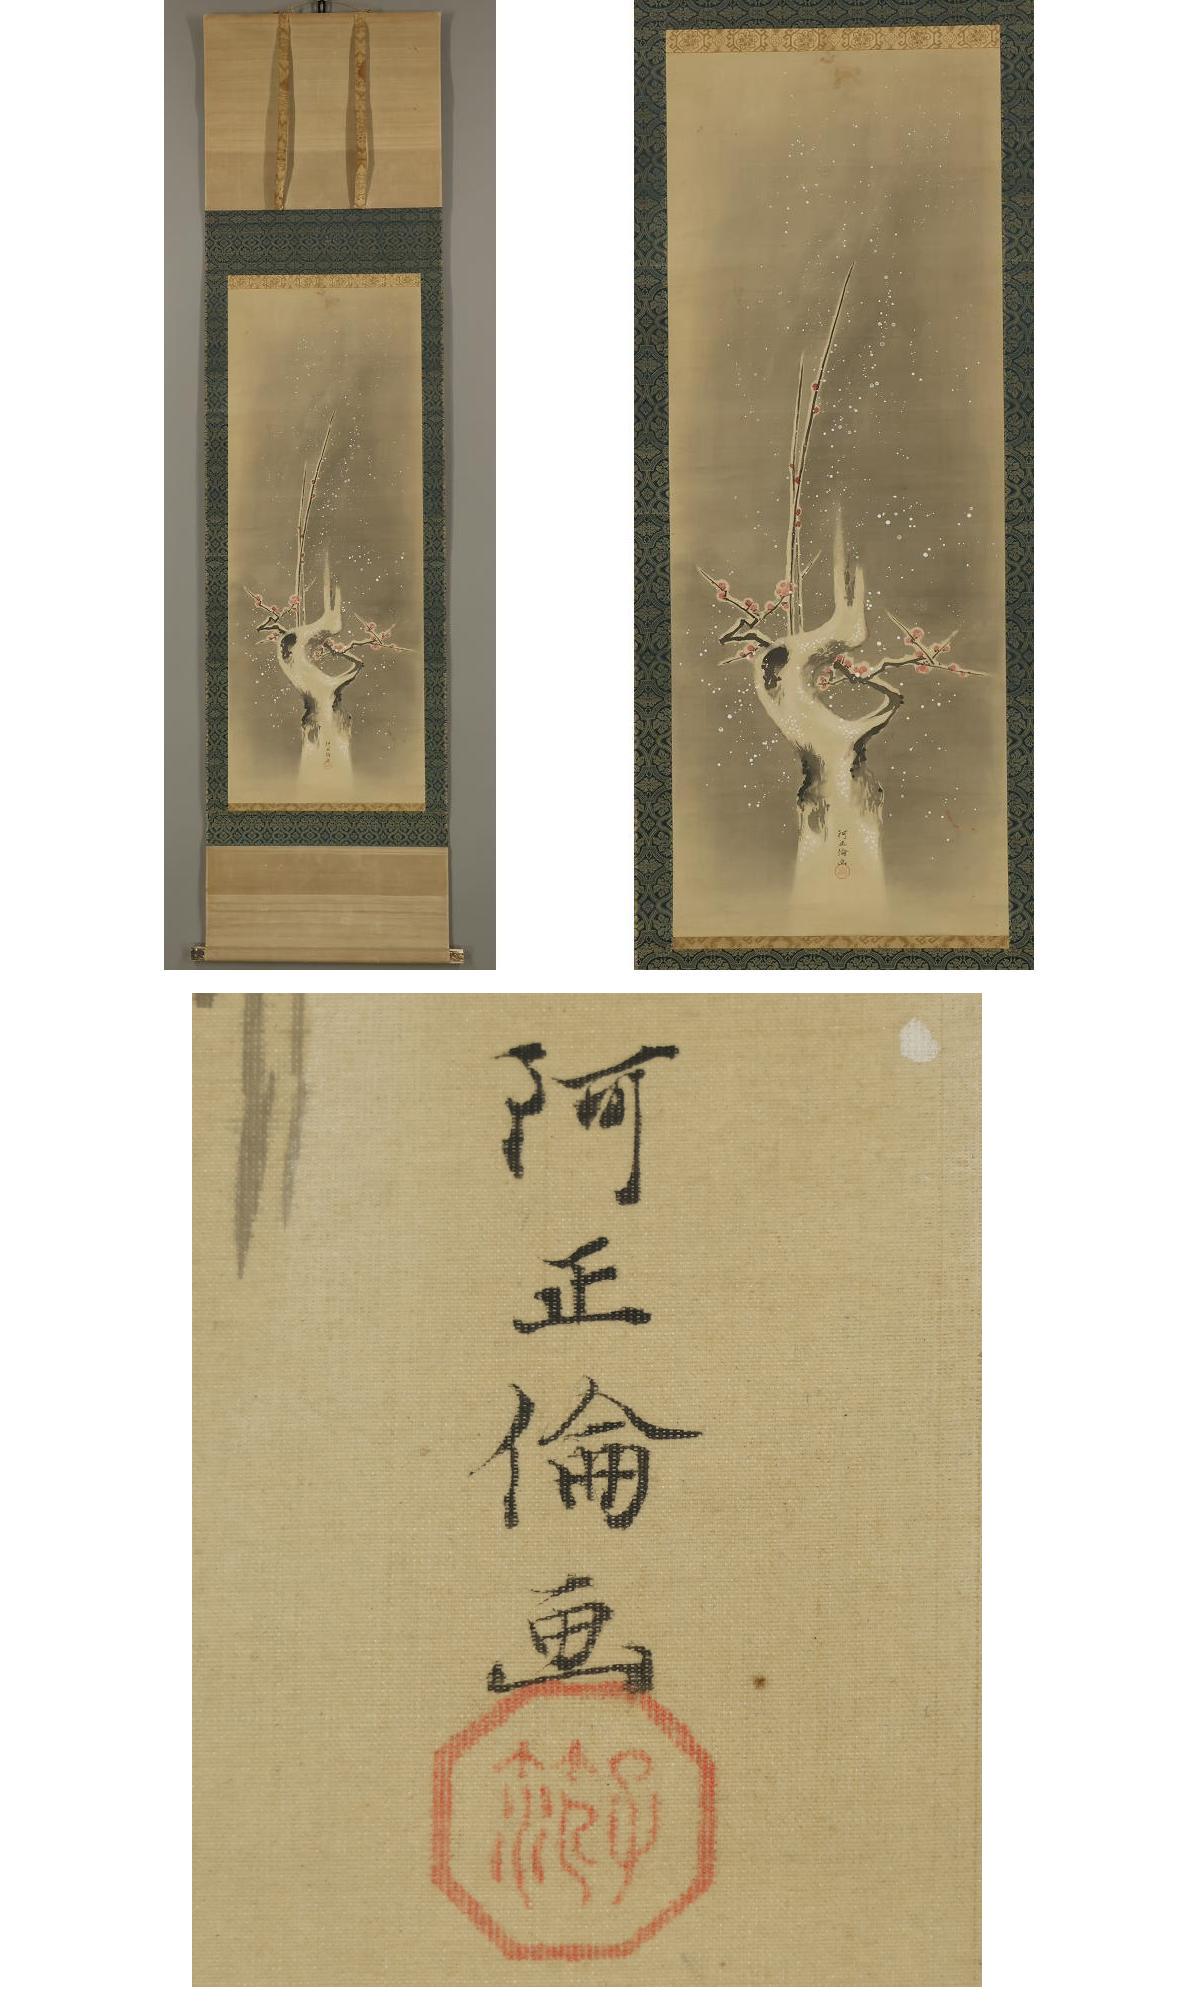 阿正倫画